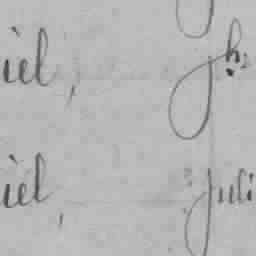 iel, Jh:
iel, Juli